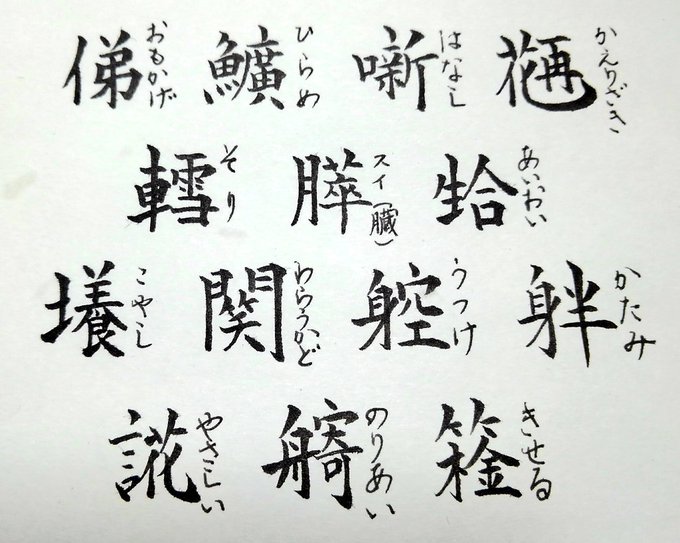 かえりざき
噺 はなし
ひらめ
俤 おもかげ
あいおい
膵 スイ(臓)
轌 そり
かたみ
躻 うつけ
わらうかど
こやし
きせる
のりあい
誮 やさしい